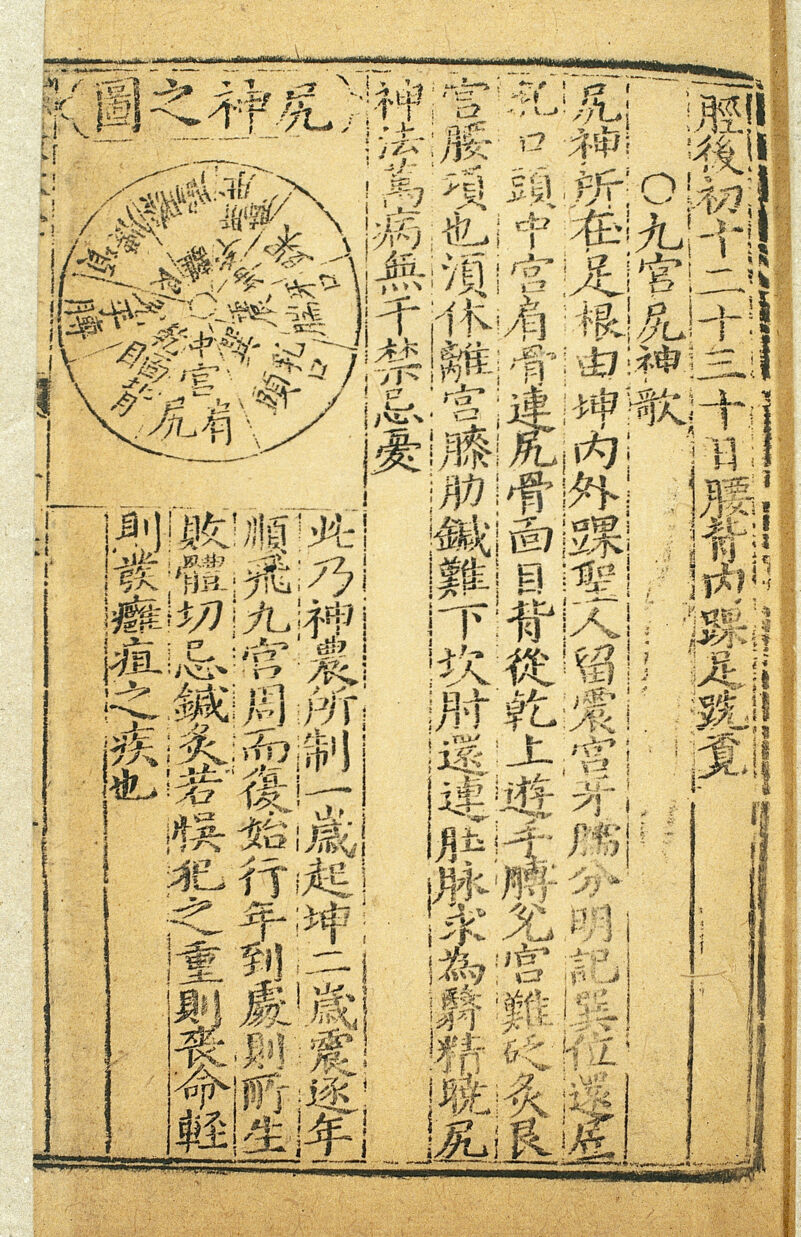 脛後初十二十三十日腰背內踝足跣覔
〇九宮尻神歌
尻神所在足根由坤內外踝聖人留震宮牙腨分明記巽位還居
乳口頭中宮肩骨連尻骨面目背從乾上遊手膊兌宮難砭灸艮
宮腰項也湏休離宮膝肋鍼難下坎肘還連肚脉求為醫精曉尻
神法萬病無干禁忌憂
尻神之圖
中宮肩尻
乳口頭
面目背
手膊
腰項
此乃神農所制一歲起坤二歲震逐年
順飛九宮周而復始行年到處則所生
敗體切忌鍼灸若悞犯之重則喪命輕
則發癰疽之疾也